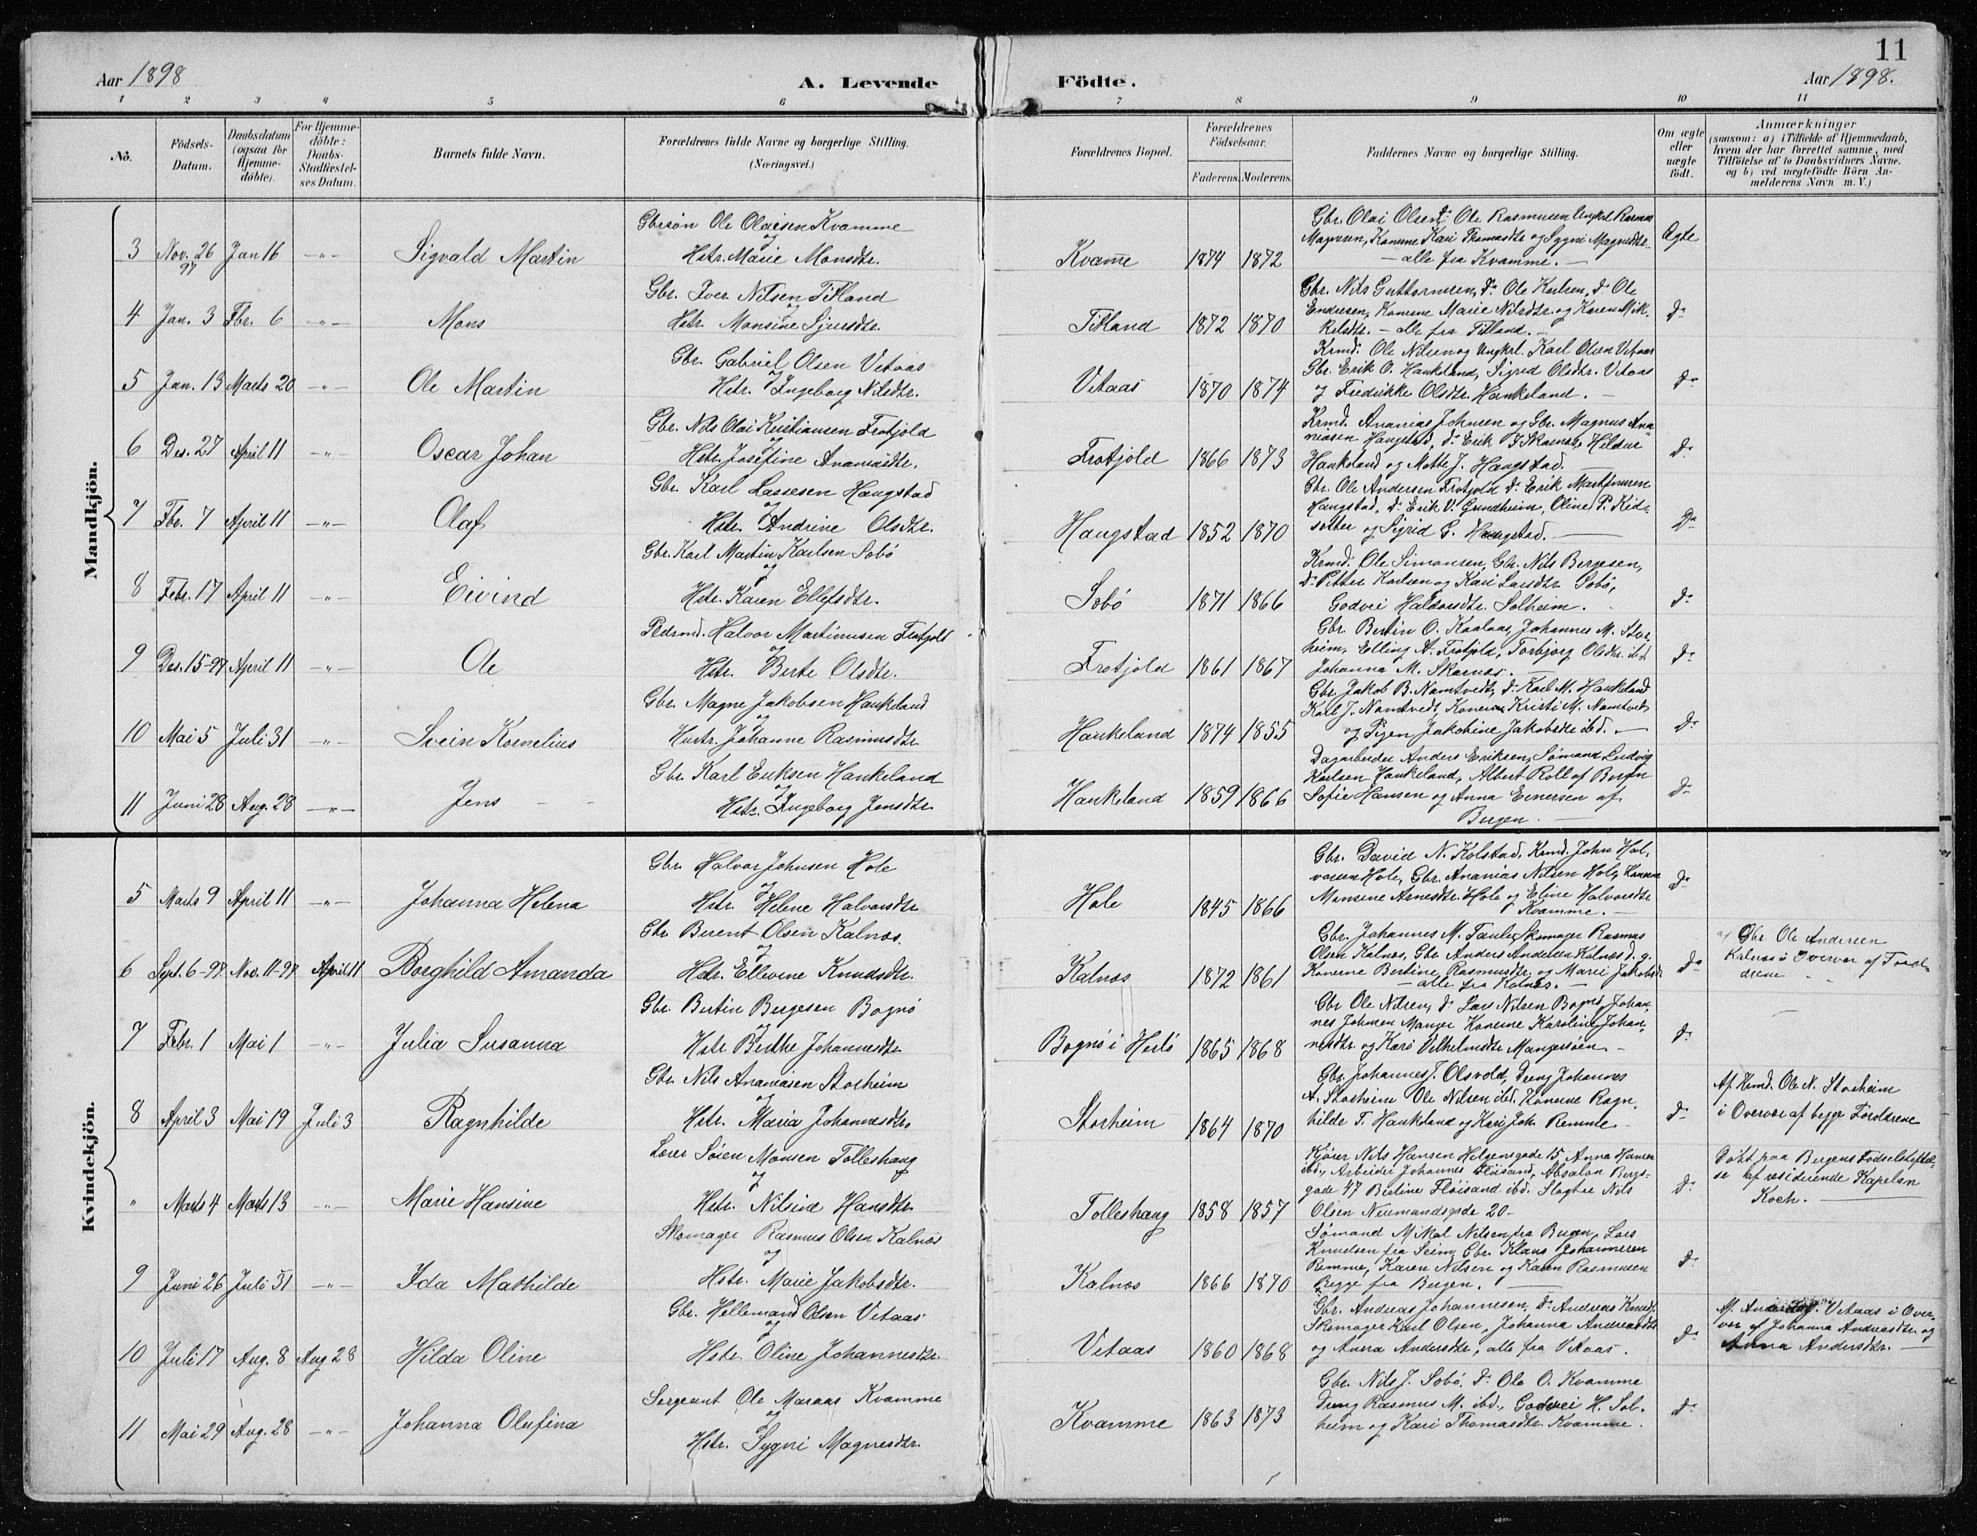 11
Aar 1898
A. Levende
Födte.
Aar 1898.
1 2 3 4 5 6 7 8 9 10 11
No.
Födsels-Datum.
Daabsdatum (ogsaa for Hjemme-döbte).
For Hjemme-döbte: Daabs-Stadfæstel-ses Datum.
Barnets fulde Navn.
Forældrenes fulde Navne og borgerlige Stilling. (Næringsvei.)
Forældrenes Bopæl.
Forældrenes Födselsaar.
Faderens. Moderens.
Faddernes Navne og borgerlige Stilling.
Om ægte eller uægte födt.
Anmærkninger
(saasom: a) i Tilfælde af Hjemmedaab,
hvem der har forrettet samme, med
Tilföielse af to Daabsvidners Navne.
og b) ved uægtefödte Börn An-
melderens Navn m. V.)
Mandkjön.
3 Nov. 26 97 Jan 16 -"- Sigvald Martin
Gbrsøn Ole Olaisen Kvamme
og
Hstr. Marie Monsdtr.
Kvamme 1874 1872
Gbr. Olai Olsen, Do Ole Rasmusen Ungkl Rasmus
Magnesen, Konerne Kari Thomasdtr og Sygni Magnedtr
— alle fra Kvamme. —
Ægte
4 Jan. 3 Fbr. 6 -"- Mons
Gbr. Iver Nilsen Titland
og
Hstr. Monsine Sjursdtr.
Titland 1872 1870
Gbr. Nils Guttormsen, Do Ole Karlsen, Do Ole
Endresen, Konerne Marie Nilsdtr og Karen Mik-
kelsdtr. — alle fra Titland. —
Do
5 Jan. 13 Marts 20 -"- Ole Martin
Gbr. Gabriel Olsen Vetaas
og
Hstr. Ingeborg Nilsdtr.
Vetaas 1870 1874
Krmd. Ole Nilsen og Ungkrl. Karl Olsen Vetaas
Gbr. Erik O. Haukeland, Sigrid Olsdtr. Vetaas
og Fredrikke Olsdtr. Haukeland. —
Do
6 Des. 27 April 11 -"- Oscar Johan
Gbr. Nils Olai Kristiansen Frotjold
og
Hstr. Josefine Ananiasdtr.
Frotjold 1866 1873
Krmd. Ananias Johnsen og Gbr. Magnus Ana-
niasen Haugstad, Do Erik J. Skarnes, Hildur
Haukeland og Mette J. Haugstad.
Do
7 Fbr. 7 April 11 -"- Olaf
Gbr. Karl Lassesen Haugstad
og
Hstr. Andrine Olsdtr.
Haugstad 1852 1870
Gbr. Ole Andersen Frotjold Do Erik Martinusen
Haugstad, Do Erik V. Grindheim, Oline P. Rid-
sotter og Sigrid G. Haugstad. —
Do
8 Febr. 17 April 11 -"- Eivind
Gbr. Karl Martin Karlsen Sobö
og
Hstr. Karen Ellefsdtr.
Sobö 1871 1866
Krmd. Ole Simonsen, Gbr. Nils Bergesen,
Do Petter Karlsen og Kari Larsdtr Sobö,
Godvei Haldorsdtr. Solheim.
Do
9 Des. 15-97 April 11 -"- Ole
Pldsmd. Halvor Martinusen Frotjold
og
Hstr. Berte Olsdtr.
Frotjold 1861 1867
Gbr. Bertin O. Kaalaas, Johannes M. Stor-
heim, Elling A. Frotjold, Torbjorg Olsdtr. ibd.
Johanna M. Skarnes. —
Do
10 Mai 5 Juli 31 -"- Svein Kornelius
Gbr. Magne Jakobsen Haukeland
og
Hustr. Johanne Rasmusdtr
Haukeland 1874 1855
Gbr. Jakob B. Namtvedt, Do Karl M. Haukeland
Karl J. Namtvedt, Konerne Kristi M. Namtvedt
og Pigen Jakobine Jakobsdtr ibd. —
Do
11 Juni 28 Aug. 28 -"- Jens
Gbr. Karl Eriksen Haukeland
og
Hstr. Ingeborg Jensdtr.
Haukeland 1859 1866
Dagarbeider Anders Eriksen, Sømand Ludvig
Karlsen Haukeland, Albert Roll af Bergen
Sofie Hansen og Anna Einersen af
Bergen. —
Do
Kvindekjön.
5 Marts 9 April 11 -"- Johanna Helena
Gbr. Halvor Johnsen Hole
og
Hstr. Helene Halvorsdtr
Hole 1845 1866
Gbr. David N. Kolstad, Krmd. John Hal-
vorsen Hole, Gbr. Ananias Nilsen Hole, Konerne
Monsine Arnesdtr Hole og Eline Halvorsdtr
Kvamme. —
Do
6 Sept. 6-97 Nov. 11-97 April 11 Borghild Amanda
Gbr Berent Olsen Kalnæs.
og
Hstr. Ellevine Knudsdtr.
Kalnæs 1872 1861
Gbr. Johannes M. Taule, Skomager Rasmus
Olsen Kalnæs, Gbr Anders Andersen Kalnæs d. y.
Konerne Bertine Rasmusdtr og Marie Jakobsdtr
— alle fra Kalnæs. —
Do
af Gbr Ole Andersen
Kalnæs i Overvær af Foræl-
drene
7 Febr. 1 Mai 1 -"- Julia Susanna
Gbr. Bertin Bergesen Bognö
og
Hstr Berthe Johannesdtr.
Bognö i Herlö 1865 1868
Gbr Ole Nilsen, Do Lars Nilsen Bognö, Johan-
nes Johnsen Manger Konerne Karoline Johan-
nesdtr. og Kari Vilhelmsdtr Mangersöen —
Do
8 April 3 Mai 19 Juli 3 Ragnhilde
Gbr. Nils Ananiasen Storheim
og
Hstr. Maria Johannesdtr.
Storheim 1864 1870
Gbr. Johannes J. Olsvold, Dreng Johannes
A. Storheim Ole Nilsen ibd. Konerne Ragn-
hilde T. Haukeland og Kari Joh. Remme.
Do
Af Krmd. Ole N. Storheim
i Overvær af begge Forældrene
" Marts 4 Marts 13 -"- Marie Hansine
Lærer Søren Monsen Tolleshaug
og
Hstr. Nilsine Hansdtr.
Tolleshaug 1858 1857
Kjører Nils Hansen Helgensgade 15 Anna Hansen
ibd., Arbeider Johannes Flöisand, Absalon Bergs-
gade 47 Bertine Flöisand ibd. Slagter Nils
Olsen Neumandsgade 20 —
Do
Döbt paa Bergens Födselsstiftel-
se af residerende Kapelan
Koch. —
9 Juni 26 Juli 31 -"- Ida Mathilde
Skomager Rasmus Olsen Kalnæs
og
Hstr. Marie Jakobsdtr.
Kalnæs 1866 1870
Sømand Mikal Nilsen fra Bergen, Lars
Knudsen fra Seim, Gbr. Klaus Johannesen
Remme, Karen Nilsen og Karen Rasmusen
Begge fra Bergen. —
Do
10 Juli 17 Aug. 8 Aug 28 Hilda Oline
Gbr. Hellemand Olsen Vetaas
og
Hstr. Oline Johannesdtr.
Vetaas 1860 1868
Gbr. Andreas Johannesen, Do Andreas Knudsen
Skomager Karl Olsen, Johanna Andreasdtr
og Anna Andersdtr, alle fra Vetaas.
Do
Vetaas i Over-
vær af Johanna Andreasdtr og
Anna Andersdtr. —
11 Mai 29 Aug. 28 -"- Johanna Olufina
Sergeant Ole Maraas Kvamme
og
Hstr. Sygni Magnesdtr.
Kvamme 1863 1873
Gbr. Nils J. Sobö, Do Ole O. Kvamme
Dreng Rasmus M. ibd., Godvei H. Sol-
heim og Kari Thomasdtr. Kvamme.
Do